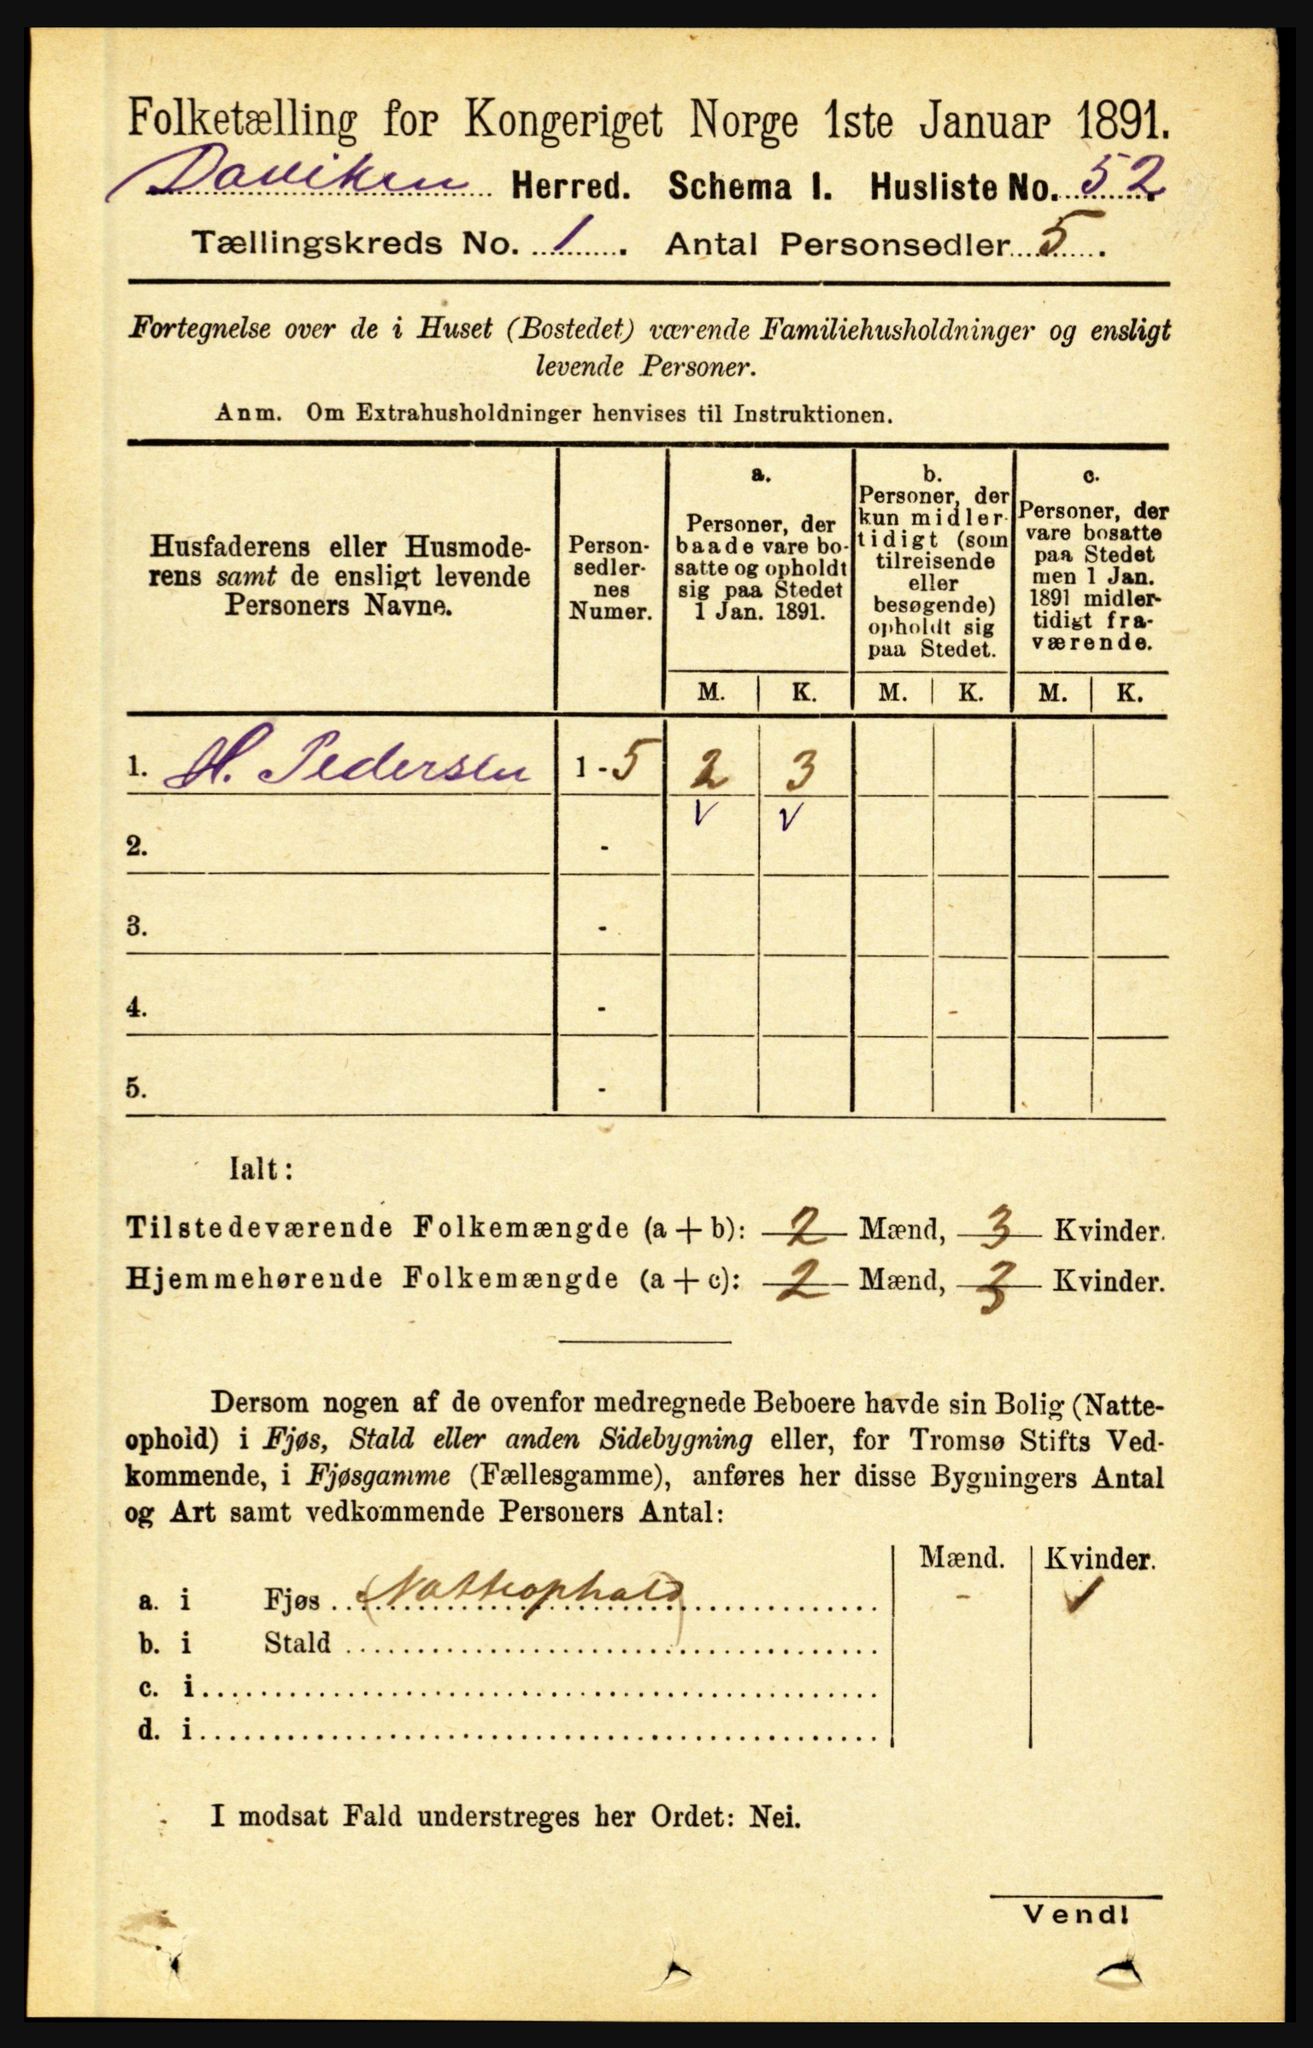 Folketælling for Kongeriget Norge 1ste Januar 1891.
Daviken Herred. Schema I. Husliste No. 52.
Tællingskreds No. 1. Antal Personsedler 5.
Fortegnelse over de i Huset (Bostedet) værende Familiehusholdninger og ensligt
levende Personer.
Anm. Om Extrahusholdninger henvises til Instruktionen.
Husfaderens eller Husmode-
rens samt de ensligt levende
Personers Navne.
Person-
sedler-
nes
Numer.
a.
Personer, der
baade vare bo-
satte og opholdt
sig paa Stedet
1 Jan. 1891.
b.
Personer, der
kun midler-
tidigt (som
tilreisende
eller
besøgende)
opholdt sig
paa Stedet.
c.
Personer, der
vare bosatte
paa Stedet
men 1 Jan.
1891 midler-
tidigt fra-
værende.
M. K. M. K. M. K.
1. H. Pedersen 1 - 5 2 3
v v
2. -
3. -
4. -
5. -
Ialt:
Tilstedeværende Folkemængde (a + b): 2 Mænd, 3 Kvinder.
Hjemmehørende Folkemængde (a + c): 2 Mænd, 3 Kvinder.
Dersom nogen af de ovenfor medregnede Beboere havde sin Bolig (Natte-
ophold) i Fjøs, Stald eller anden Sidebygning eller, for Tromsø Stifts Ved-
kommende, i Fjøsgamme (Fællesgamme), anføres her disse Bygningers Antal
og Art samt vedkommende Personers Antal:
Mænd. Kvinder.
a. i Fjøs (Natteophold) - 1
b. i Stald
c. i
d. i
I modsat Fald understreges her Ordet: Nei.
Vend!